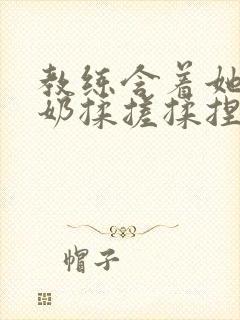 教练含着她
奶揉搓揉捏
帽子